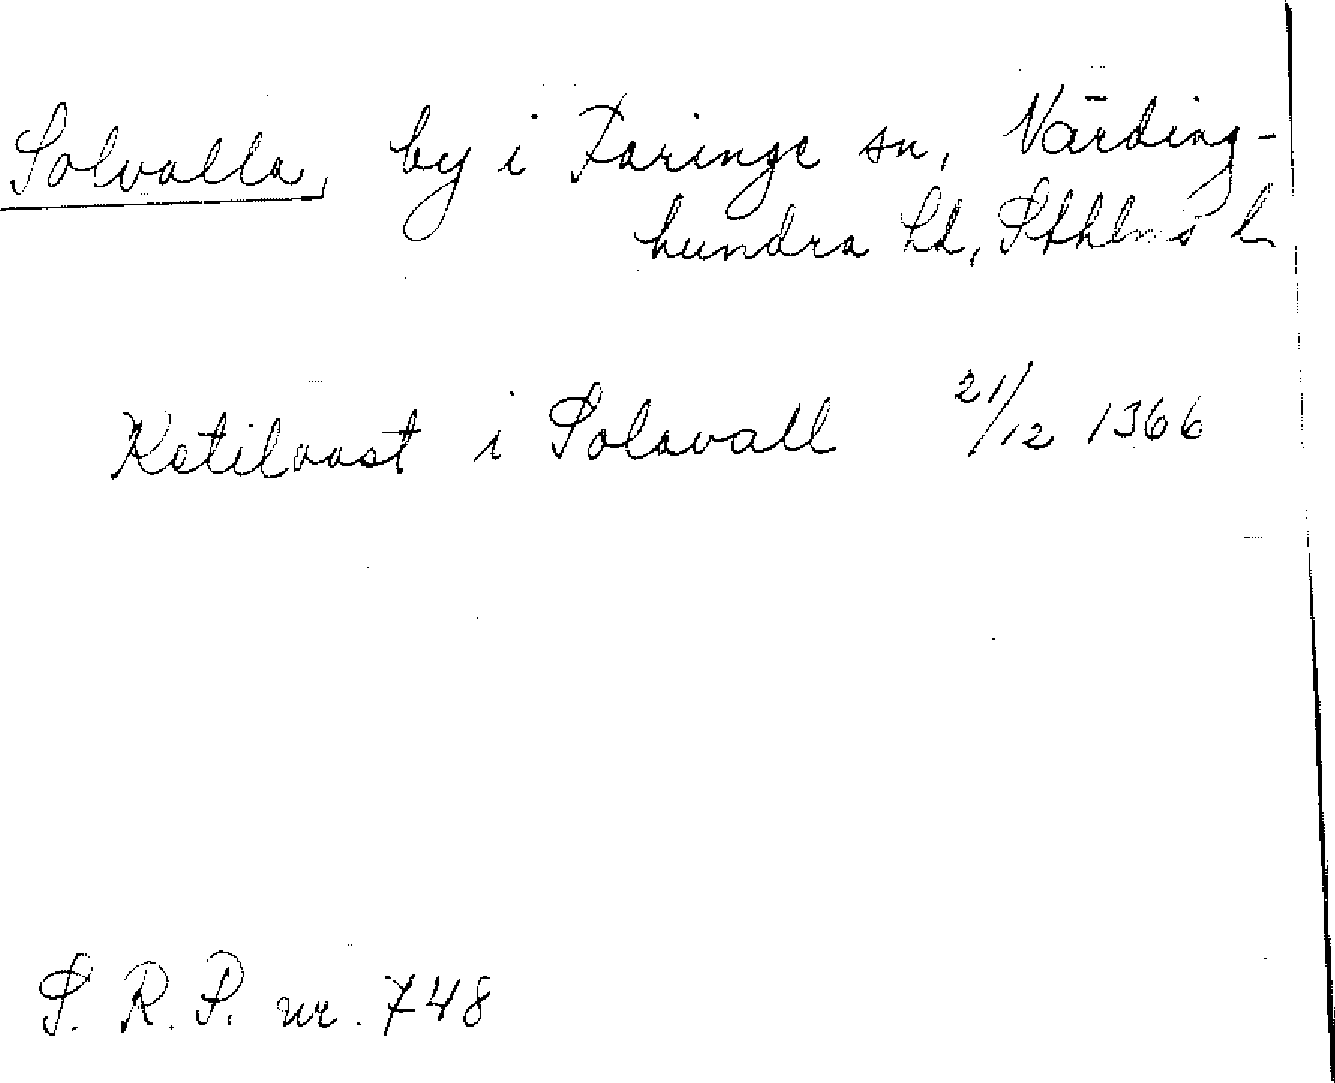 Solvalla, by i Faringe sn, Närding-
hundra hd, Sthlms l
Ketilvast i Solavall 21/12 1366
S. R. P. nr. 748